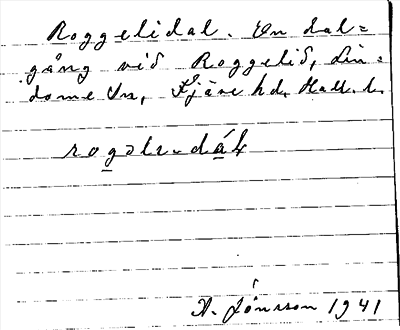 Roggelidal. En dal=
gång vid Roggelid, Lin=
dome sn, Fjäre hd. Hall. l.
rogəli-dáɫ
A. Jónsson 1941